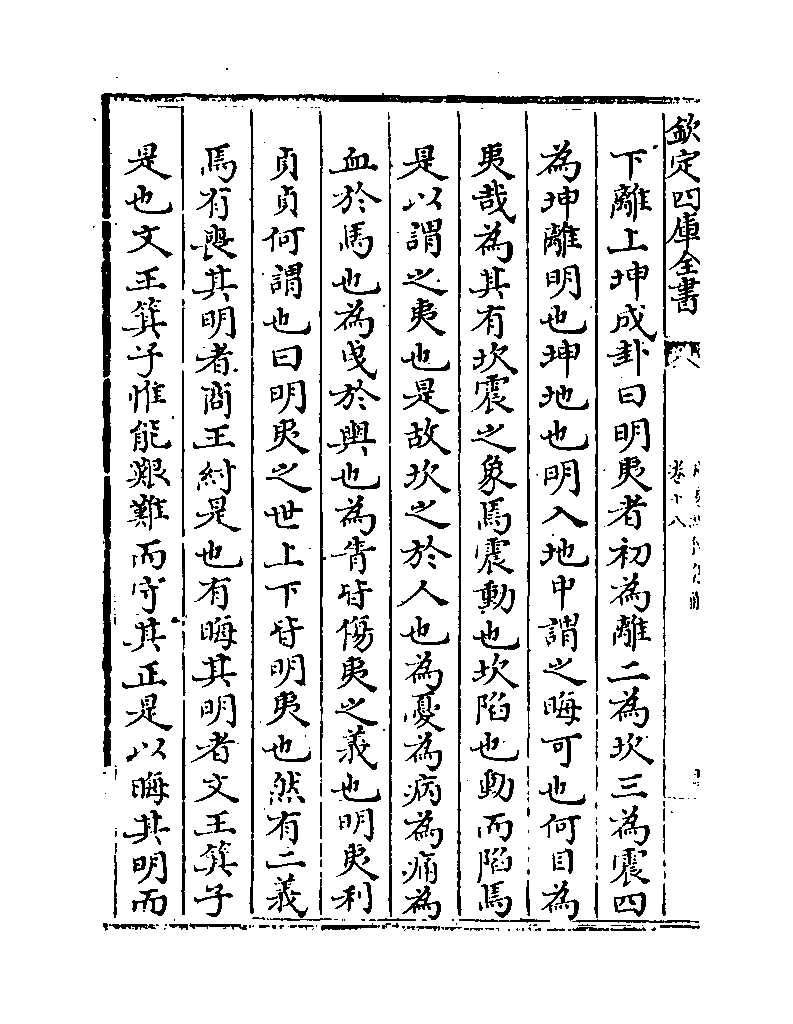 欽定四庫全書
卷十八
下離上坤成卦曰明夷者初為離二為坎三為震四
為坤離明也坤地也明入地中謂之晦可也何目為
夷哉為其有坎震之象焉震動也坎陷也動而陷焉
是以謂之夷也是故坎之於人也為憂為病為痛為
血於馬也為曳於輿也為眚皆傷夷之義也明夷利
貞貞何謂也曰明夷之世上下皆明夷也然有二義
焉有喪其明者商王紂是也有晦其明者文王箕子
是也文王箕子惟能艱難而守其正是以晦其明而